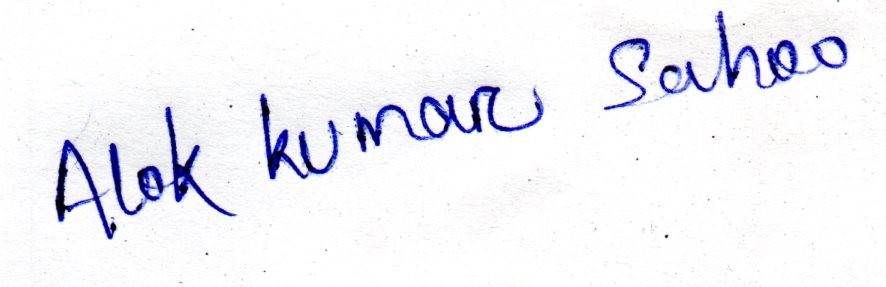 Alok kumar Sahoo